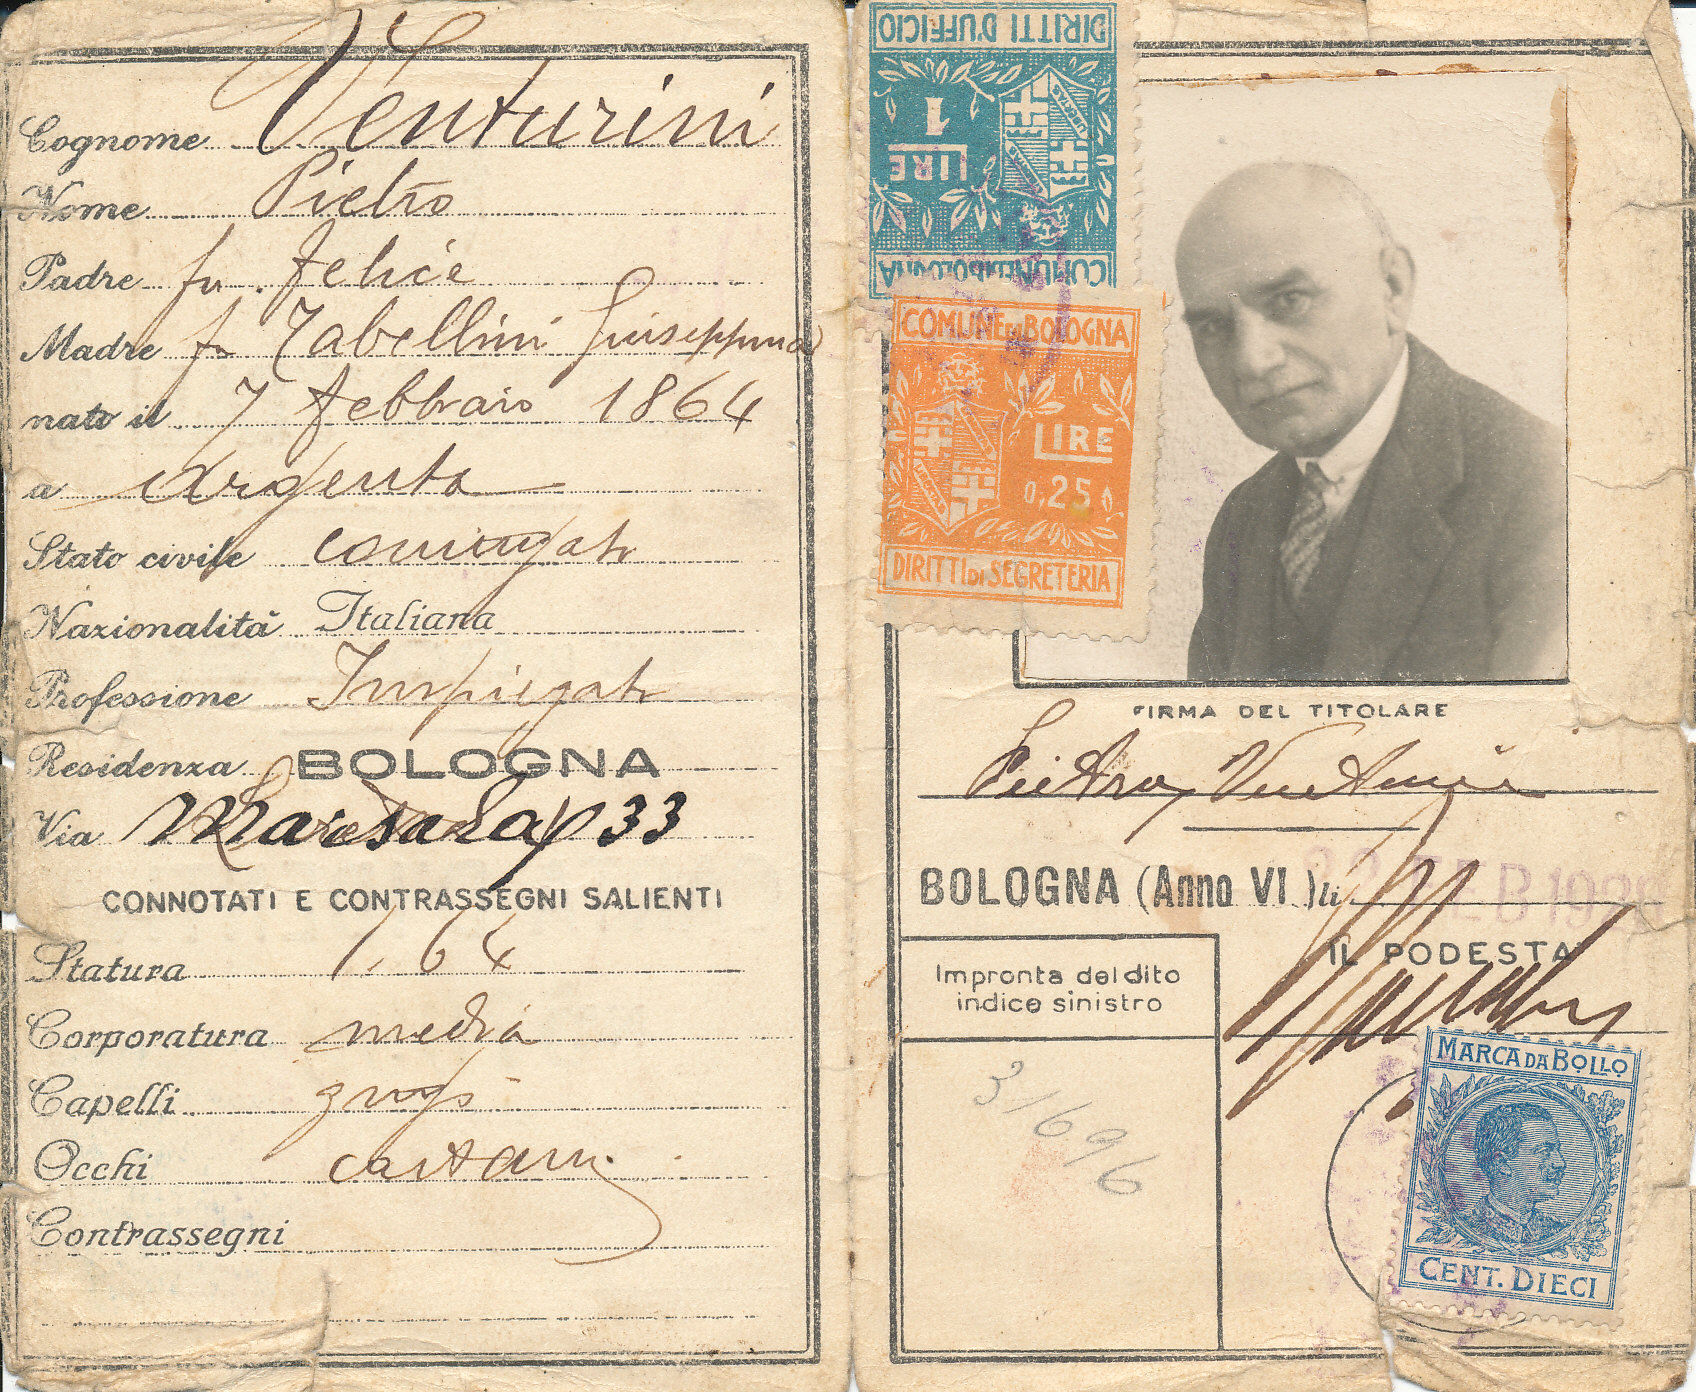 Cognome Venturini
Nome Pietro
Padre fu Felice
Madre fu Tabellini Giuseppina
nato il 7 febbraio 1864
a Argenta
Stato civile coniugato
Nazionalità Italiana
Professione Impiegato
Residenza BOLOGNA
Via Marsala 33
CONNOTATI E CONTRASSEGNI SALIENTI
Statura 1.64
Corporatura media
Capelli grigi
Occhi castani
Contrassegni
DIRITTI D'UFFICIO
LIRE 1
LIBERTAS
COMUNE DI BOLOGNA
COMUNE DI BOLOGNA
LIBERTAS
LIRE
0,25
DIRITTI DI SEGRETERIA
FIRMA DEL TITOLARE
Pietro Venturini
BOLOGNA (Anno VI) li FEB 1928
IL PODESTA
Impronta del dito
indice sinistro
31696
MARCA DA BOLLO
CENT. DIECI